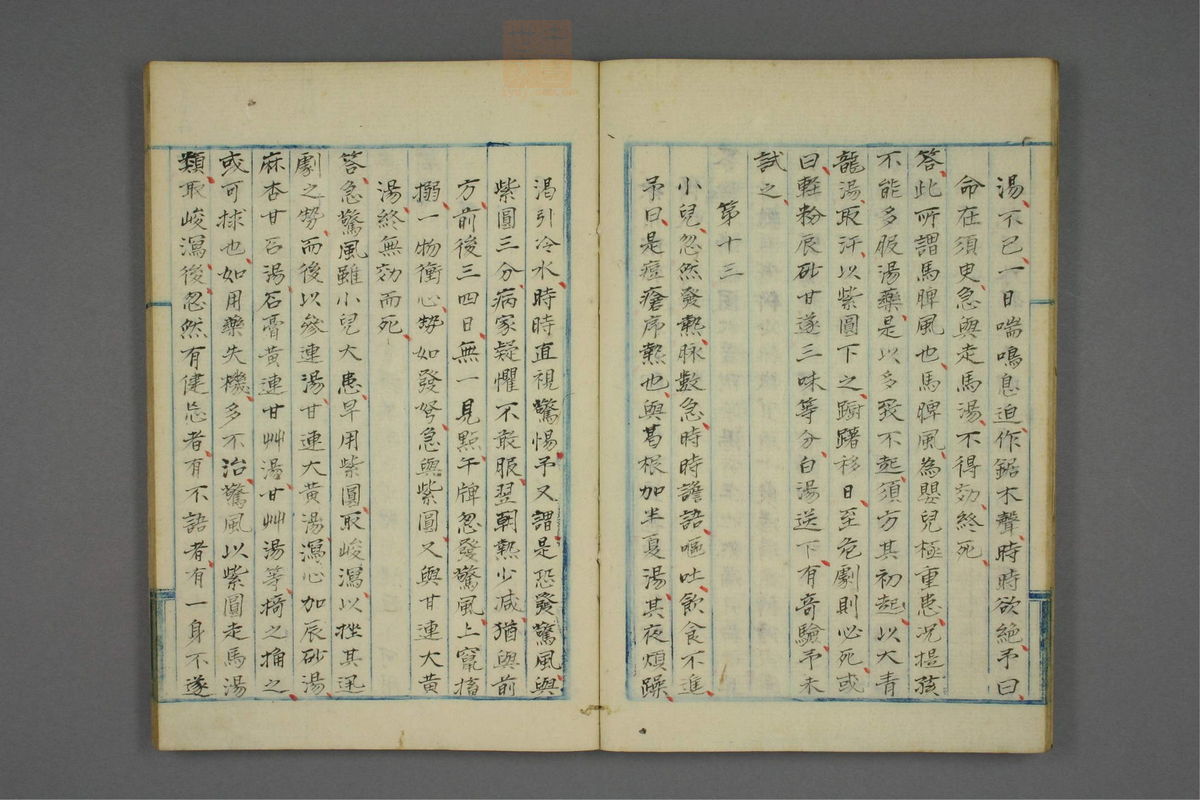 湯不已一日喘鳴息迫作鋸木聲時時欲絶予曰
命在須臾急與走馬湯不得効終死
答此所謂馬脾風也馬脾風為嬰兒極重患況提孩
不能多服湯藥是以多致不起須方其初起以大青
龍湯取汗以紫圓下之躊躇移日至危劇則必死或
曰軽粉辰砂甘遂三味等分白湯送下有奇驗予未
試之
第十三
小兒忽然發熱脉数急時時譫語嘔吐飲食不進
予曰是痘瘡序熱也與葛根加半夏湯其夜煩躁
渇引冷水時時直視驚惕予又謂是恐發驚風與
紫圓三分病家疑懼不敢服翌朝熱少減猶與前
方前後三四日無一見點午牌忽發驚風上竄搐
搦一物衝心勢如發弩急與紫圓又與甘連大黄
湯終無効而死
答急驚風雖小兒大患早用紫圓取峻瀉以挫其迅
劇之勢而後以縁連湯甘連大黄湯瀉心加辰砂湯
麻杏甘石湯石膏黄連甘艸湯甘艸湯等掎之角之
或可捄也如用藥失機多不治驚風以紫圓走馬湯
類取峻瀉後忽然有健忘者有不語者有一身不遂